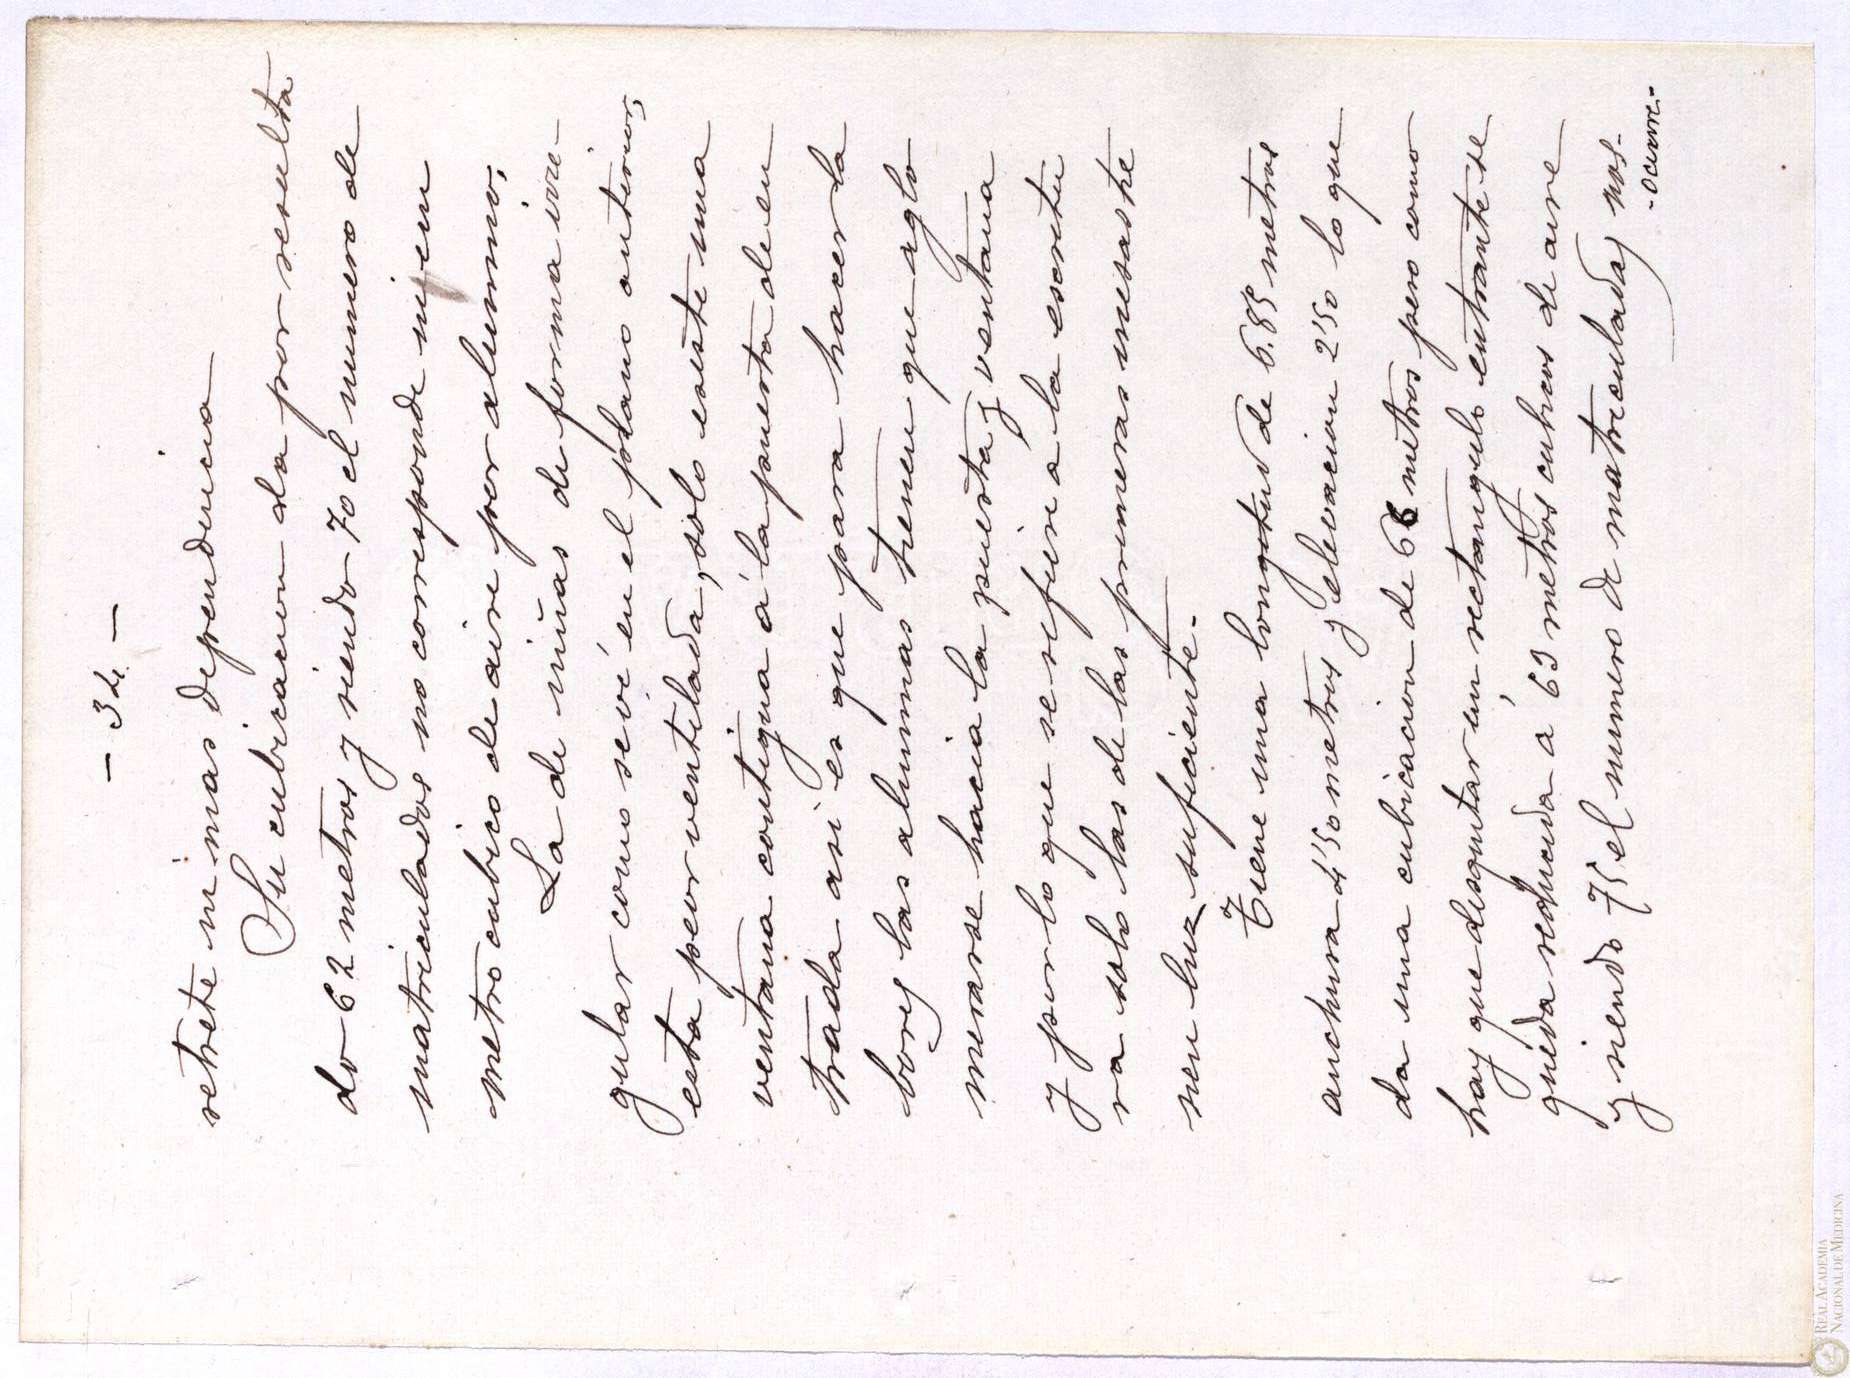 - 34 -
retrete ni mas dependencia
Su cubicacion da por resulta
do 62 metros y siendo 70 el numero de
matriculados no corresponde ni un
metro cubico de aire por alumno,
La de niñas de forma irre-
gular como se vé en el plano anterior,
esta peor ventilada, solo existe una
ventana contigua á la puerta de en
trada asi es que para hacer la
bores las alumnas tienen que aglo
merarse hacia la puerta y ventana
y por lo que se refiere á la escritu
ra solo las de las primeras mesas tie
nen luz suficiente.-
Tiene una longitud de 6.85 metros
anchura 4'50 metros y elevacion 2'50 lo que
da una cubicacion de 66 metros pero como
hay que desquitar un rectangulo entrante se
queda reducida á 63 metros cubicos de aire
y siendo 75 el numero de matriculadas nos-
-ocurre.-
REAL ACADEMIA
NACIONAL DE MEDICINA